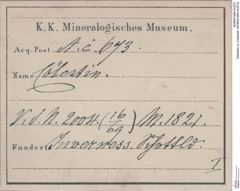 K. K. Mineralogisches Museum.
Acq. Post A. c. 673.
Name Cölestin.
V. d. N. 2004. (16/69) M. 1821.
Fundort Inverness. Schottld.
I